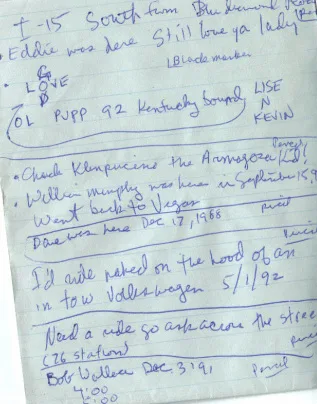 I-15 South from Blue diamond Road
• Eddie was here Still love ya lady
Black marker
G
• LOVE
D
LISE
N
KEVIN
OL PUPP 92 Kentucky bound
Pencil
• Chuck the Armagoza Kid!
• Willie Murphy was here in September 15, 9
Went back to Vegas
pencil
Dave was here Dec 17, 1988
Pencil
I'd ride naked on the hood of an
in tow Volkswagen 5/1/92
Need a ride go ask across the stree
(76 station)
pencil
Bob Dec 3 '91 pencil
4:00
6:00